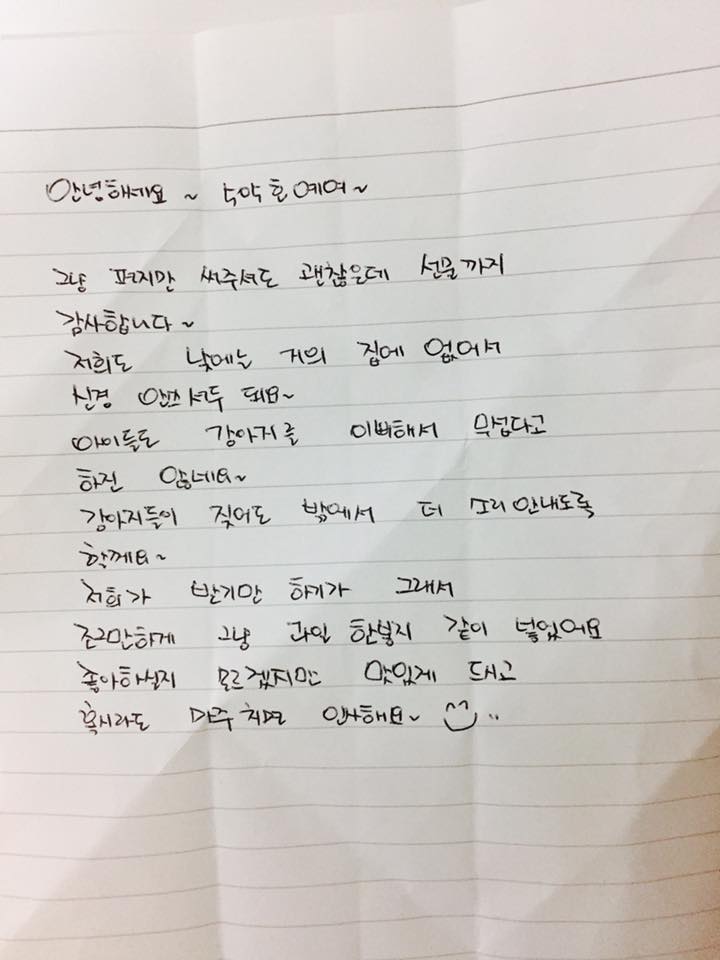 안녕하세요 ~ 예여~
그냥 편지만 써주셔도 괜찮은데 선물까지
감사합니다~
저희도 낮에는 거의 집에 없어서
신경 안쓰셔두 되요~
아이들도 강아지를 이뻐해서 무섭다고
하진 않네요~
강아지들이 짖어도 밖에서 더 소리안내도록
할께요~
저희가 받기만 하기가 그래서
조그만하게 그냥 과일 한봉지 같이 넣었어요
좋아하실지 모르겠지만 맛있게 드시고
혹시라도 마주치면 인사해요~